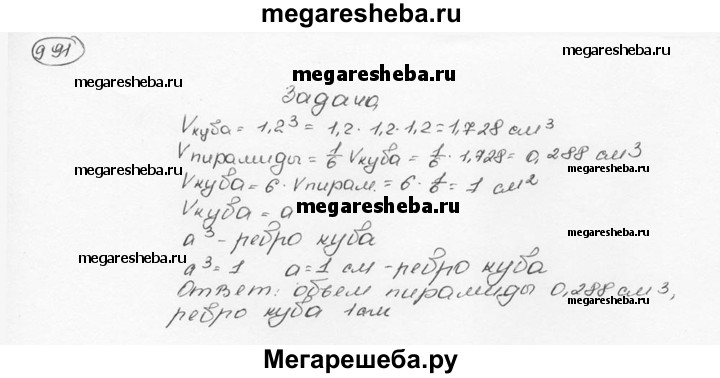 megaresheba.ru
991
megaresheba.ru megaresheba.ru megaresheba.ru
Задача
Vкуба = 1,2³ = 1,2 · 1,2 · 1,2 = 1,728 см³
Vпирамиды = 1/6 Vкуба = 1/6 · 1,728 = 0,288 см³
Vкуба = 6 · Vпирам. = 6 · 1/6 = 1 см²
Vкуба = a
megaresheba.ru megaresheba.ru megaresheba.ru
a³ - ребро куба
a³ = 1 a = 1 см - ребро куба
Ответ: объем пирамиды 0,288 см³,
ребро куба 1см
Мегарешеба.ру